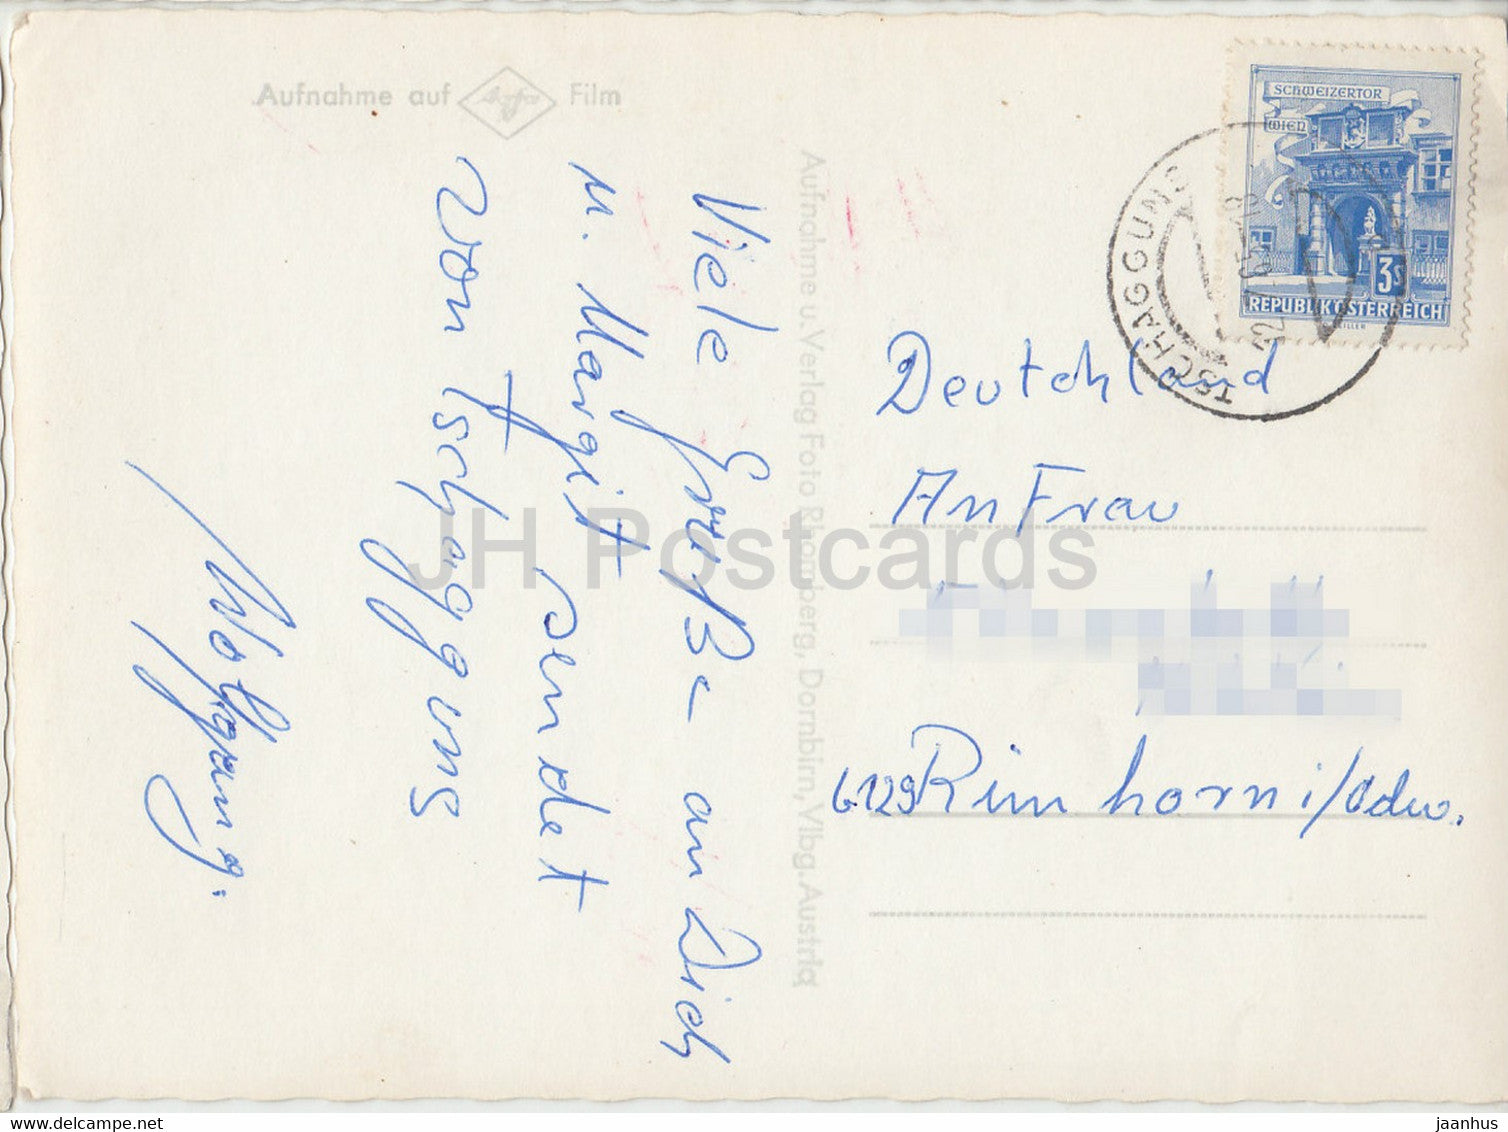 Aufnahme auf Agfa Film
Aufnahme u. Verlag Foto Rhomberg, Dornbirn, Vlbg. Austria
SCHWEIZERTOR
WIEN
3S
REPUBLIK ÖSTERREICH
TSCHAGGUNS
Viele Grüße an Dich
u. Margit sendet
von Tschagguns
Wolfgang.
Deutchland
An Frau
6129 Rimhorn i/Odw.
JH Postcards
www.delcampe.net
jaanhus